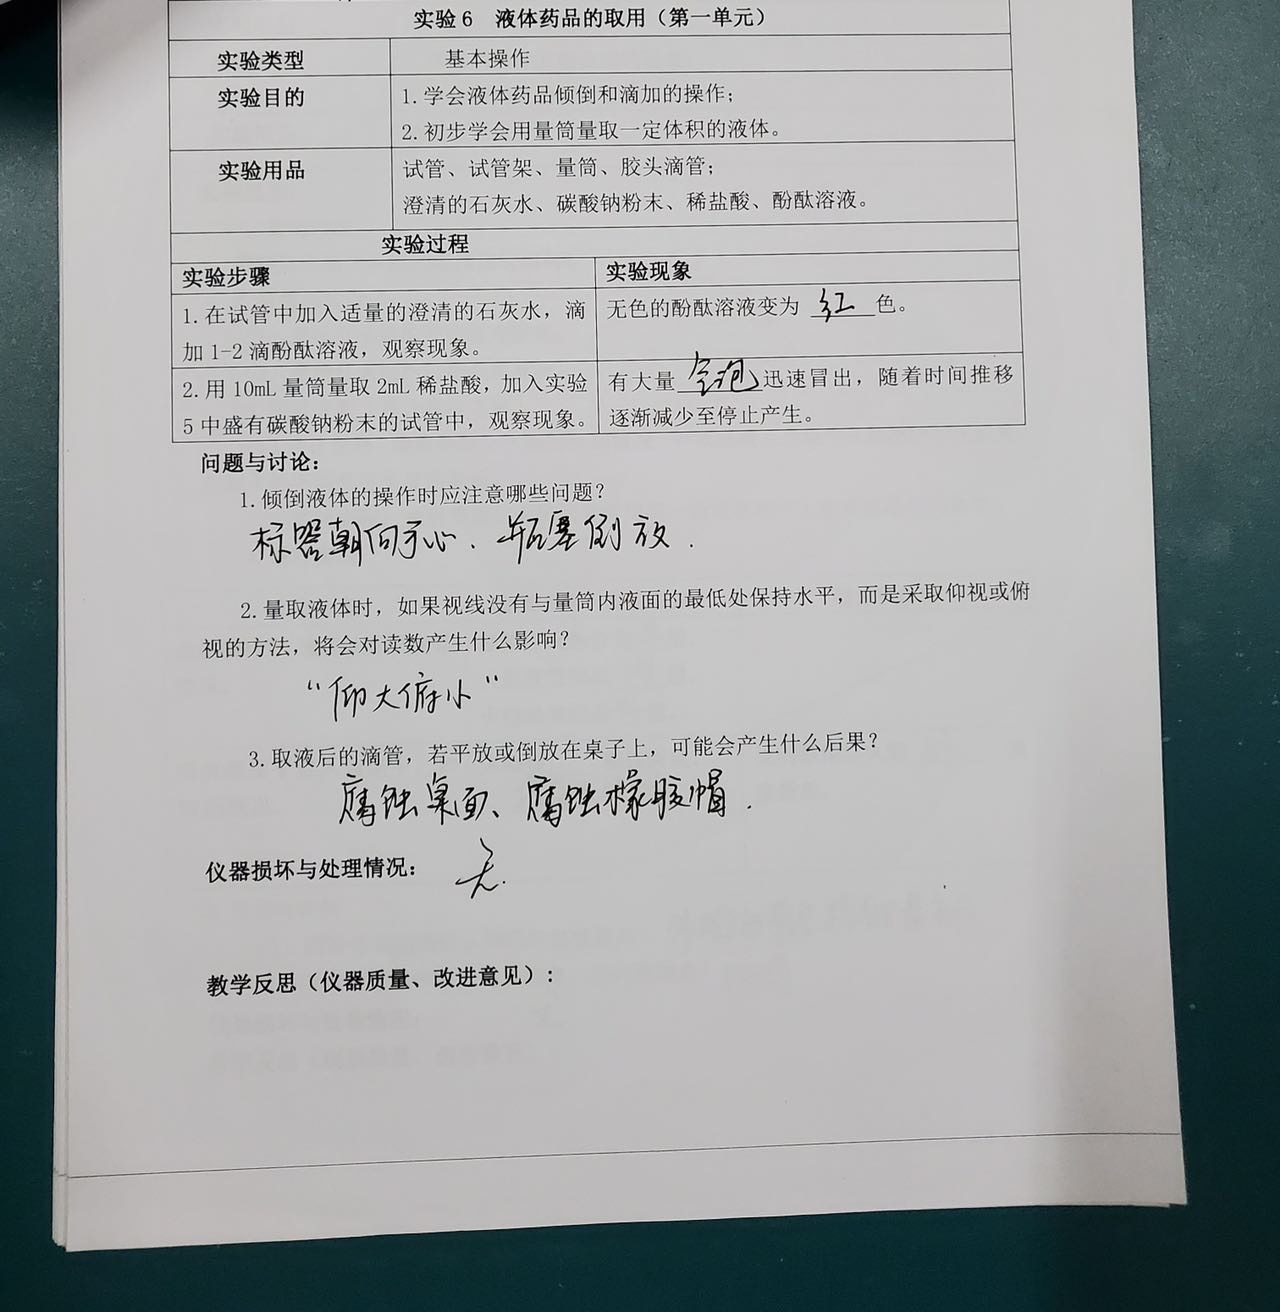 实验 6 液体药品的取用（第一单元）
实验类型 基本操作
实验目的 1.学会液体药品倾倒和滴加的操作；
2.初步学会用量筒量取一定体积的液体。
实验用品 试管、试管架、量筒、胶头滴管；
澄清的石灰水、碳酸钠粉末、稀盐酸、酚酞溶液。
实验过程
实验步骤 实验现象
1.在试管中加入适量的澄清的石灰水，滴 无色的酚酞溶液变为 红 色。
加 1-2 滴酚酞溶液，观察现象。
2.用 10mL 量筒量取 2mL 稀盐酸，加入实验 有大量 气泡 迅速冒出，随着时间推移
5 中盛有碳酸钠粉末的试管中，观察现象。 逐渐减少至停止产生。
问题与讨论：
1.倾倒液体的操作时应注意哪些问题？
标签朝向手心、瓶塞倒放．
2.量取液体时，如果视线没有与量筒内液面的最低处保持水平，而是采取仰视或俯
视的方法，将会对读数产生什么影响？
“仰大俯小”
3.取液后的滴管，若平放或倒放在桌子上，可能会产生什么后果？
腐蚀桌面、腐蚀橡胶帽．
仪器损坏与处理情况： 无．
教学反思（仪器质量、改进意见）：